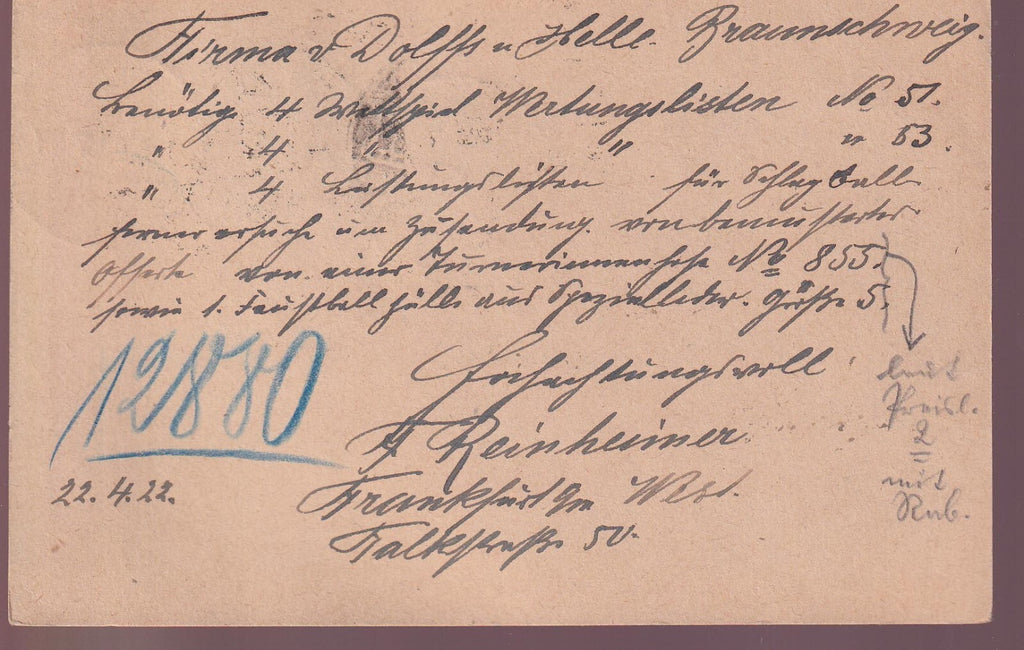 Firma v Dolffs u Helle. Braunschweig.
Benötige 4 Wettspiel Wertungslisten No 51.
" 4 " " " 53.
" 4 Leistungslisten für Schlagball
ferner ersuche um Zusendung von bemusterter
Offerte von einer Turnerinnenhose No 855.
sowie 1. Faustball hülle aus Spezialleder. Größe 5.
Hochachtungsvoll
Reinheimer
Frankfurt a/m West.
Falkstraße 50.
22.4.22.
12880
laut
Preisl.
2
mit
Rab.